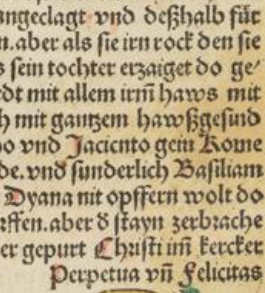 angeclagt vnd deßhalb für
n. aber als sie irn rock den sie
s sein tochter erzaiget do ge⸗
rdt mit allem irm̃ haws mit
h mit gantzem hawßgesind
o vnd Jacincto gein Rome
de. vnd sunderlich Basiliam
Dyana nit opffern wolt do
rffen. aber d̕ stayn zerbrache
er gepurt Christi im̃ kercker
Perpetua vñ Felicitas